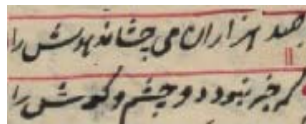 صد هزاران می چشاند هوش را
که خبر نبود دو چشم و گوش را